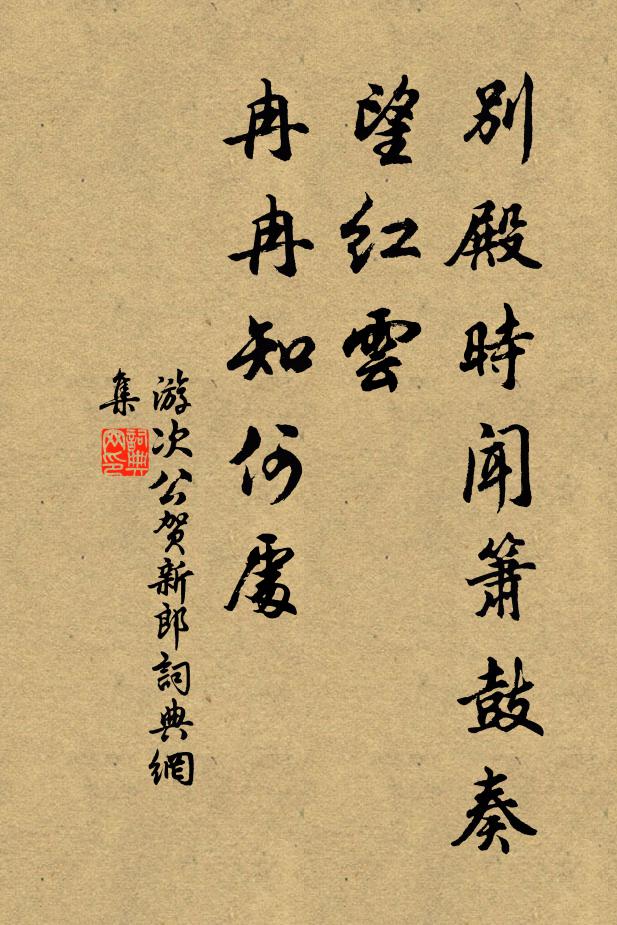 別殿時聞簫鼓奏
望紅雲
冉冉知何處
游次公賀新郎詞典網
集
詞典
网印